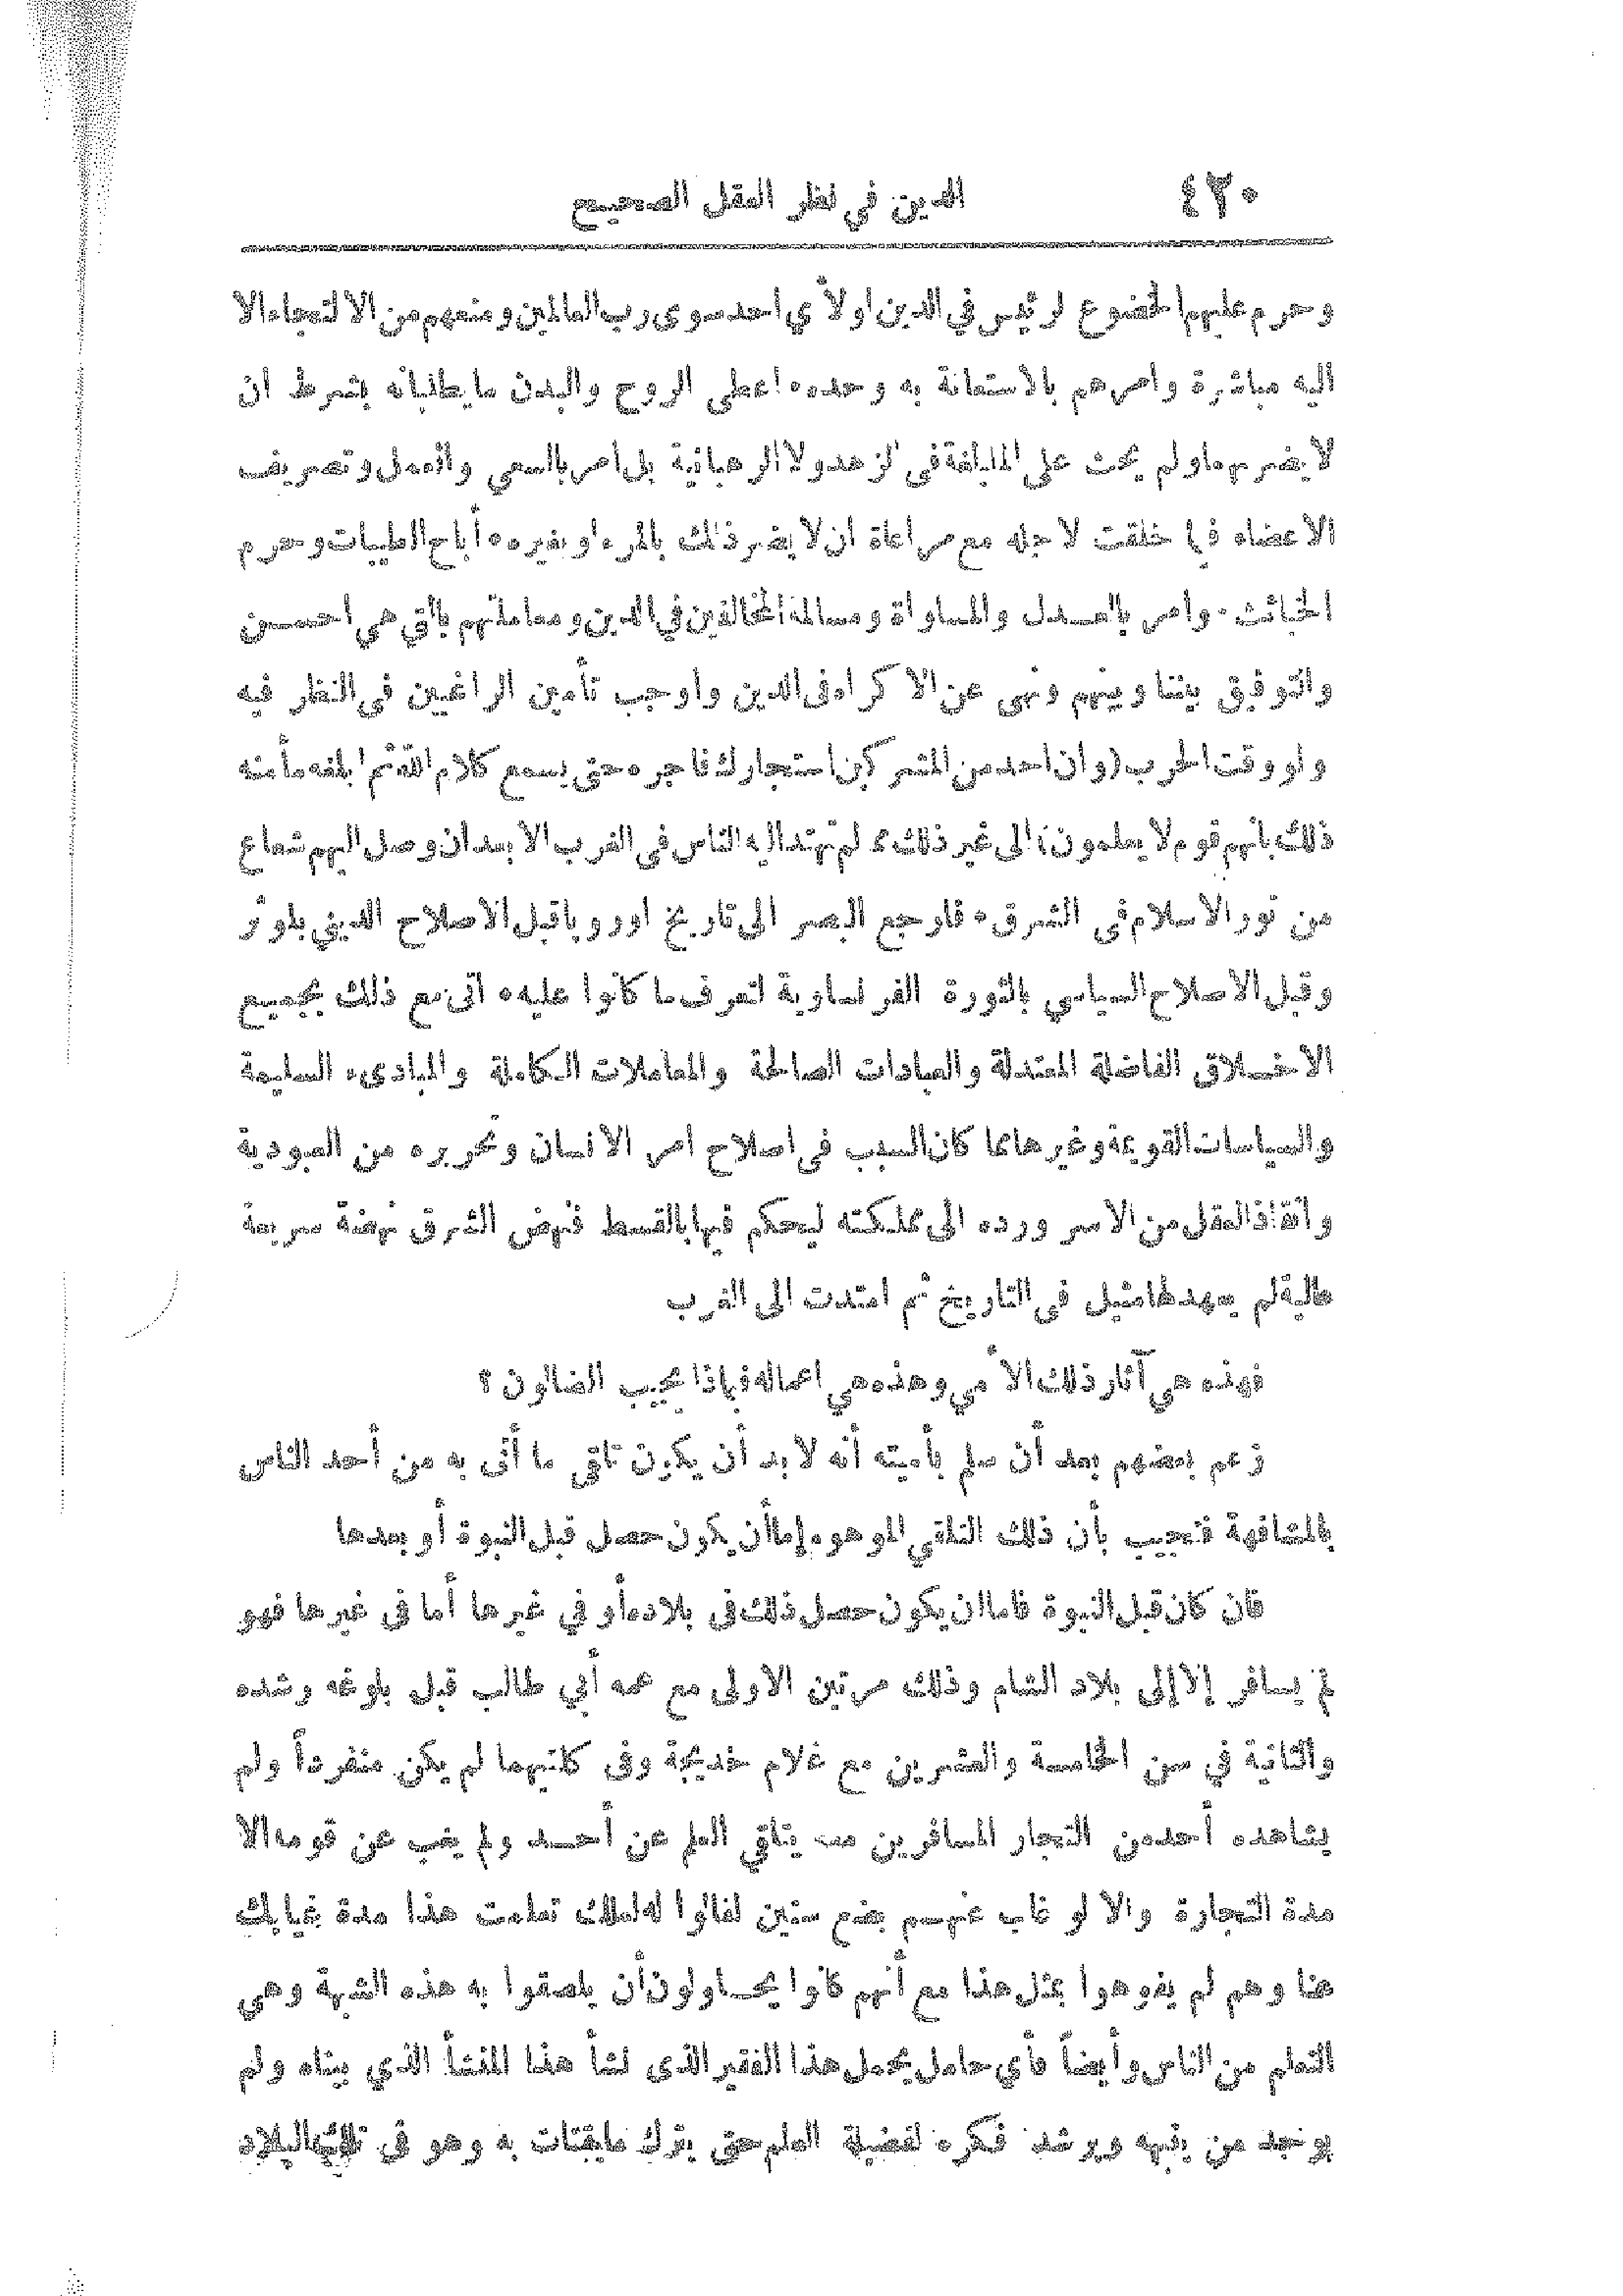 ٤٢٠ الدين في نظر العقل الصحيح
وحرم عليهم الخضوع لرئيس في الدين او لأي احد سوى رب العالمين ومنعهم من الالتجاء الا
اليه مباشرة وامرهم بالاستعانة به وحده. اعطى الروح والبدن ما يطلبانه بشرط ان
لا يضر بهما ولم يحث على المبالغة في الزهد ولا الرهبانية بل امر بالسعي والعمل وتصريف
الاعضاء فيما خلقت لاجله مع مراعاة ان لا يضر ذلك بالمرء او بغيره. أباح الطيبات وحرم
الخبائث. وامر بالعدل والمساواة ومسالمة المخالفين في الدين ومعاملتهم بالتي هي احسن
والتوفيق بيننا وبينهم ونهى عن الاكراه في الدين واوجب تأمين الراغبين في النظر فيه
ولو وقت الحرب (وان احد من المشركين استجارك فاجره حتى يسمع كلام الله ثم ابلغه مأمنه
ذلك بانهم قوم لا يعلمون) الى غير ذلك مما لم تهتد اليه الناس في الغرب الا بعد ان وصل اليهم شعاع
من نور الاسلام في الشرق. فارجع البصر الى تاريخ اوروبا قبل الاصلاح الديني بلوثر
وقبل الاصلاح السياسي بالثورة الفرنساوية لتعرف ما كانوا عليه. اتى مع ذلك بجميع
الاخلاق الفاضلة المعتدلة والعبادات الصالحة والمعاملات الكاملة والمبادىء السليمة
والسياسات القويمة وغيرها مما كان السبب في اصلاح امر الانسان وتحريره من العبودية
وانقاذ العقل من الاسر ورده الى مملكته ليحكم فيها بالقسط فنهض الشرق نهضة سريعة
عالية لم يعهد لها مثيل في التاريخ ثم امتدت الى الغرب
فهذه هي آثار ذلك الأمي وهذه هي اعماله فبماذا يجيب الضالون ؟
زعم بعضهم بعد أن سلم بأميته أنه لا بد أن يكون تلقى ما أتى به من أحد الناس
بالمشافهة فنجيب بأن ذلك التلقي الموهوم إما أن يكون حصل قبل النبوة أو بعدها
فان كان قبل النبوة فاما ان يكون حصل ذلك في بلاده أو في غيرها أما في غيرها فهو
لم يسافر إلا إلى بلاد الشام وذلك مرتين الاولى مع عمه أبي طالب قبل بلوغه رشده
والثانية في سن الخامسة والعشرين مع غلام خديجة وفى كلتيهما لم يكن منفرداً ولم
يشاهده أحد من التجار المسافرين معه يتلقى العلم عن أحد ولم يغب عن قومه الا
مدة التجارة والا لو غاب عنهم بضع سنين لقالوا له لعلك تعلمت هذا مدة غيابك
عنا وهم لم يفوهوا بمثل هذا مع أنهم كانوا يحاولون أن يلصقوا به هذه الشبهة وهي
التعلم من الناس وأيضاً فأي حامل يحمل هذا الفقير الذى نشأ هذا المنشأ الذي بيناه ولم
يوجد من ينبهه ويرشد فكره لفضيلة العلم حتى يترك مايقتات به وهو في تلك البلاد